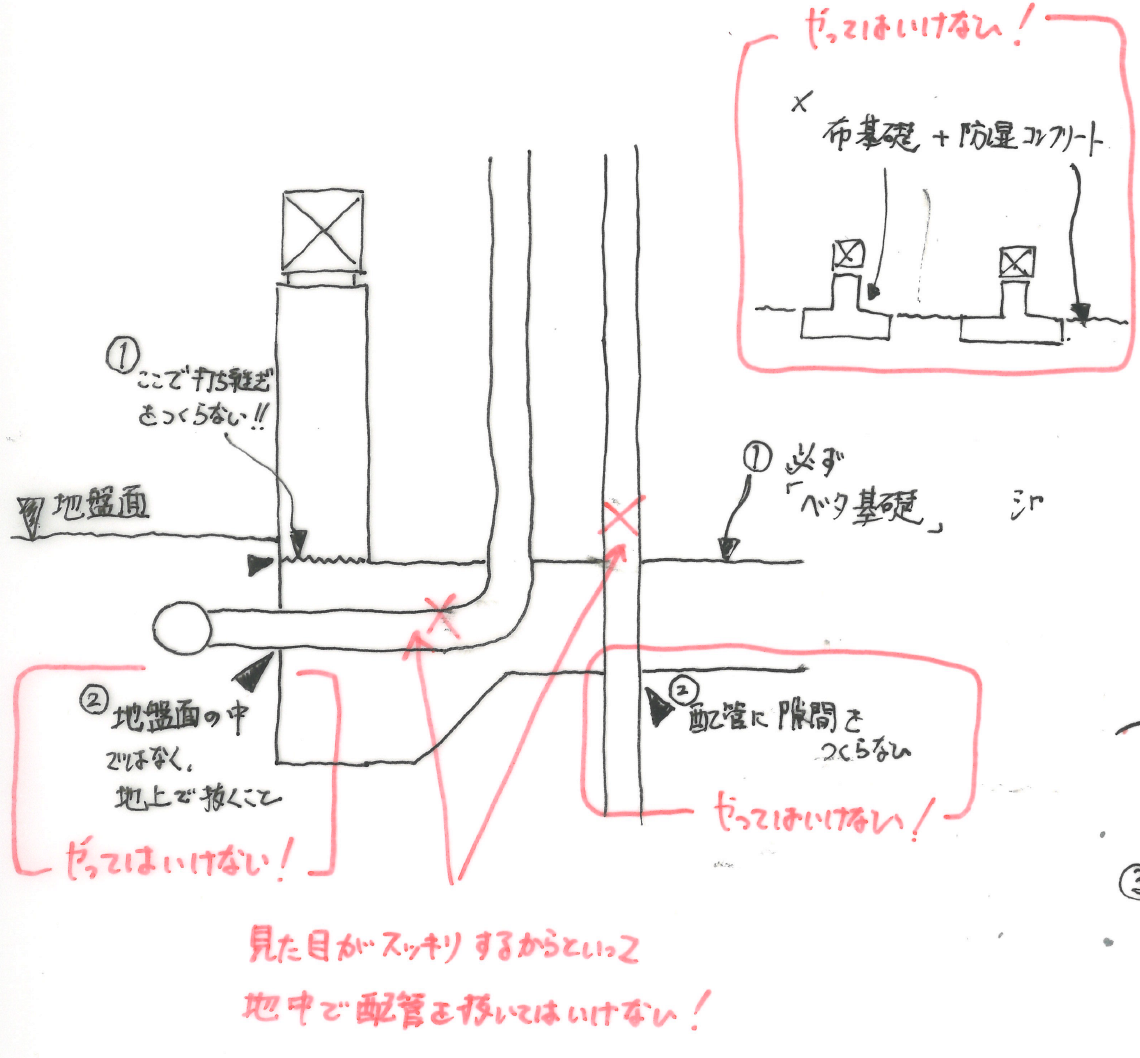 やってはいけない!
×
布基礎 + 防湿コンクリート
①
ここで打ち継ぎ
をつくらない!!
地盤面
① 必ず
「ベタ基礎」
②
地盤面の中
ではなく、
地上で抜くこと
やってはいけない!
②
配管に隙間を
つくらない
やってはいけない!
③
見た目がスッキリするからといって
地中で配管を抜いてはいけない!